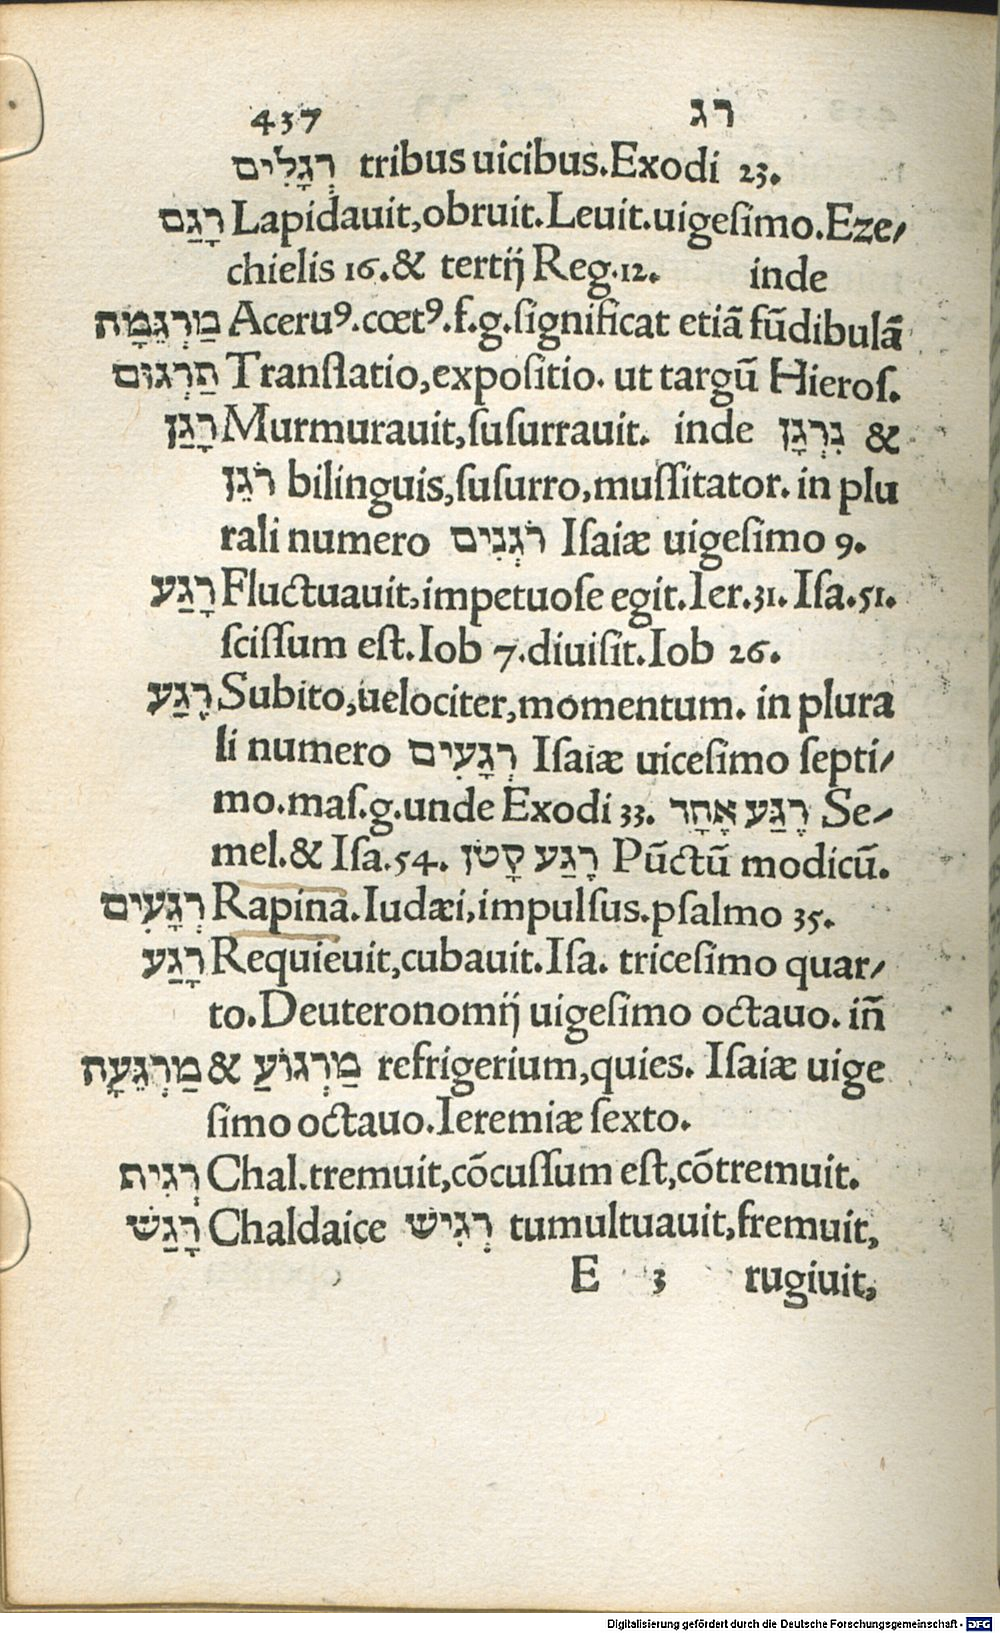 437 רג
רְגָלִים tribus uicibus. Exodi 23.
רָגַם Lapidauit, obruit. Leuit. uigeſimo. Eze/
chielis 16. & tertij Reg. 12. inde
מַרְגֵּמָה Aceruꝰ. cœtꝰ. f. g. ſignificat etiā fūdibulā
תַרְגּוּם Tranſlatio, expoſitio. ut targū Hieroſ.
רָגַן Murmurauit, ſuſurrauit. inde נִרְגָן &
רֹגֵן bilinguis, ſuſurro, muſſitator. in plu
rali numero רֹגְנִים Iſaiæ uigeſimo 9.
רָגַע Fluctuauit, impetuoſe egit. Ier. 31. Iſa. 51.
ſciſſum eſt. Iob 7. diuiſit. Iob 26.
רֶגַע Subito, uelociter, momentum. in plura
li numero רְגָעִים Iſaiæ uiceſimo ſepti/
mo. maſ. g. unde Exodi 33. רֶגַע אֶחָר Se/
mel. & Iſa. 54. רֶגַע קָטֹן Pūctū modicū.
רְגָעִים Rapina. Iudæi, impulſus. pſalmo 35.
רָגַע Requieuit, cubauit. Iſa. triceſimo quar/
to. Deuteronomij uigeſimo octauo. iñ
מַרְגֵּעָה & מַרְגּוֹעַ refrigerium, quies. Iſaiæ uige
ſimo octauo. Ieremiæ ſexto.
רְגִית Chal. tremuit, cōcuſſum eſt, cōtremuit.
רָגַשׁ Chaldaice רְגִישׁ tumultuauit, fremuit,
E 3 rugiuit,
Digitalisierung gefördert durch die Deutsche Forschungsgemeinschaft - DFG